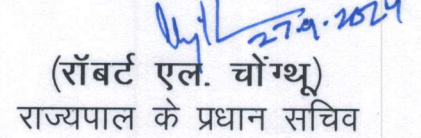 27.9.2024
(रॉबर्ट एल. चोंग्थू)
राज्यपाल के प्रधान सचिव